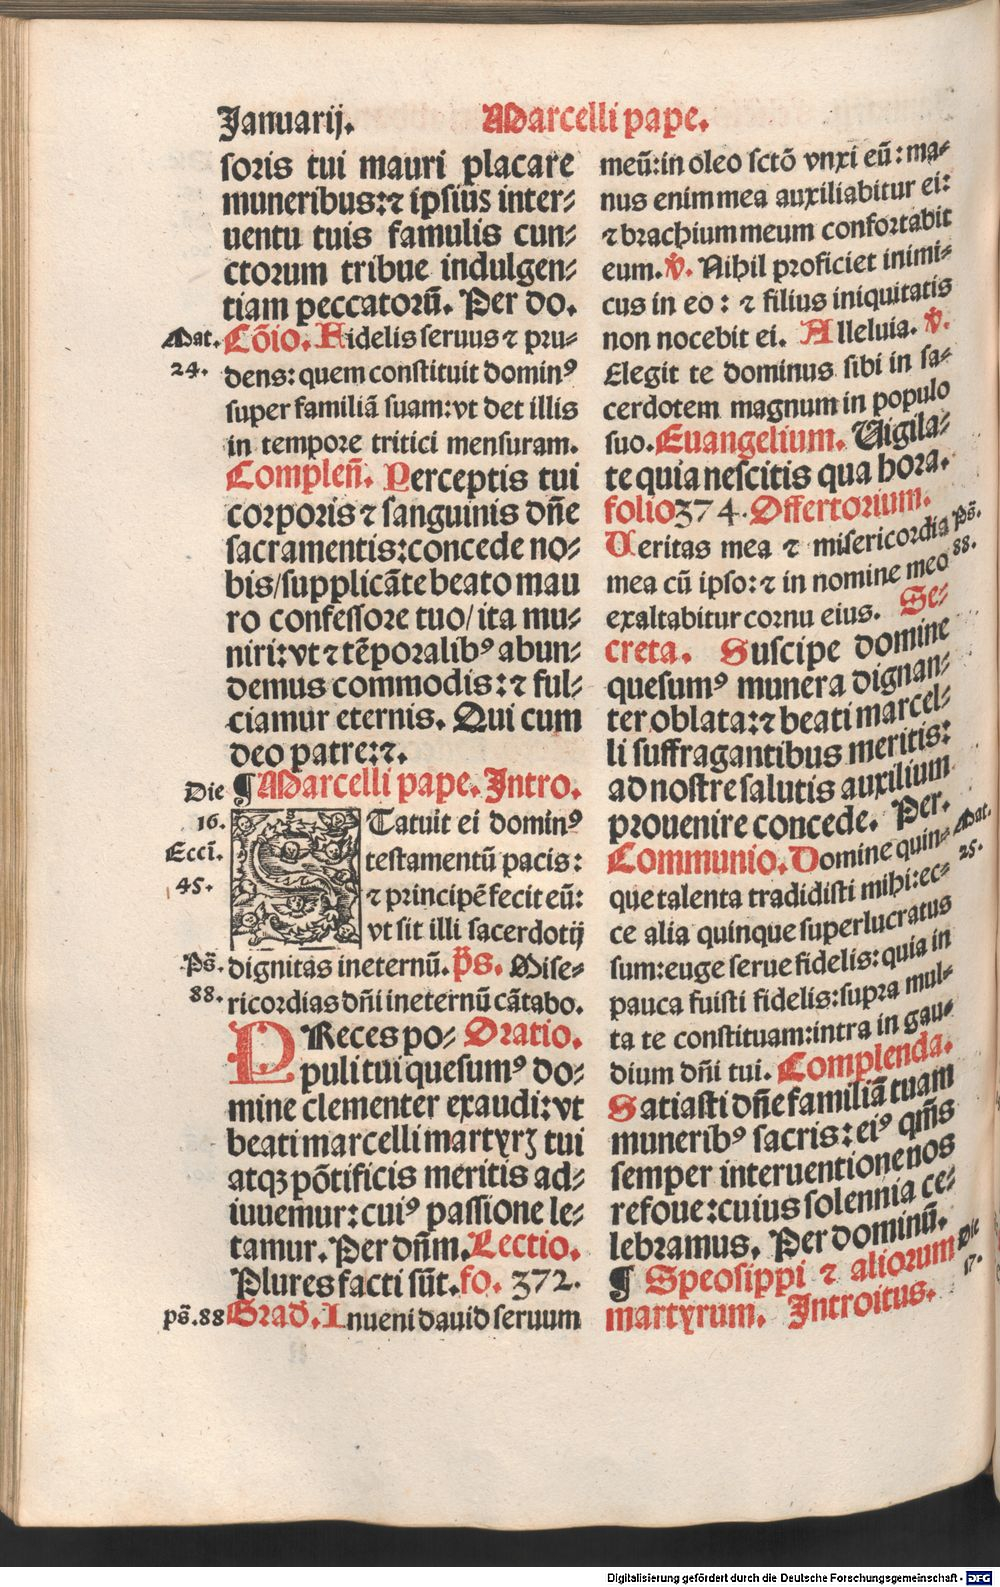 Januarij. Marcelli pape.
soris tui mauri placare
muneribus: ⁊ ipsius inter⸗
uentu tuis famulis cun⸗
ctorum tribue indulgen⸗
tiam peccatorū. Per do.
Mat. Cōio. Fidelis seruus ⁊ pru⸗
24. dens: quem constituit dominꝰ
super familiā suam: vt det illis
in tempore tritici mensuram.
Compleñ. Perceptis tui
corporis ⁊ sanguinis dñe
sacramentis: concede no⸗
bis/ supplicāte beato mau
ro confessore tuo/ ita mu⸗
niri: vt ⁊ tēporalibꝰ abun⸗
demus commodis: ⁊ ful⸗
ciamur eternis. Qui cum
deo patre: ⁊.
Die ¶ Marcelli pape. Intro.
16. STatuit ei dominꝰ
Eccī. testamentū pacis:
45. ⁊ principē fecit eū:
vt sit illi sacerdotij
Ps̄. dignitas ineternū. p̄s. Mise⸗
88. ricordias dñi ineternū cātabo.
PReces po⸗ Oratio.
puli tui quesumꝰ do⸗
mine clementer exaudi: vt
beati marcelli martyrꝫ tui
atqꝫ pōtificis meritis ad⸗
iuuemur: cuiꝰ passione le⸗
tamur. Per dñm. Lectio.
Plures facti sūt. fo. 372.
ps̄. 88 Grad̄. Inueni dauid seruum
meū: in oleo sctō vnxi eū: ma⸗
nus enim mea auxiliabitur ei:
⁊ brachium meum confortabit
eum. v̄. Nihil proficiet inimi⸗
cus in eo: ⁊ filius iniquitatis
non nocebit ei. Alleluia. v̄.
Elegit te dominus sibi in sa⸗
cerdotem magnum in populo
suo. Euangelium. Vigila⸗
te quia nescitis qua hora.
folio 374. Offertorium.
Veritas mea ⁊ misericordia Ps̄.
mea cū ipso: ⁊ in nomine meo 88.
exaltabitur cornu eius. Se⸗
creta. Suscipe domine
quesumꝰ munera dignan⸗
ter oblata: ⁊ beati marcel⸗
li suffragantibus meritis:
ad nostre salutis auxilium
prouenire concede. Per.
Communio. Domine quin⸗ Mat.
que talenta tradidisti mihi: ec⸗ 25.
ce alia quinque superlucratus
sum: euge serue fidelis: quia in
pauca fuisti fidelis: supra mul⸗
ta te constituam: intra in gau⸗
dium dñi tui. Complenda.
Satiasti dñe familiā tuam
muneribꝰ sacris: eiꝰ qm̄s
semper interuentione nos
refoue: cuius solennia ce⸗
lebramus. Per dominū.
¶ Speosippi ⁊ aliorum Die
martyrum. Introitus. 17.
Digitalisierung gefördert durch die Deutsche Forschungsgemeinschaft - DFG